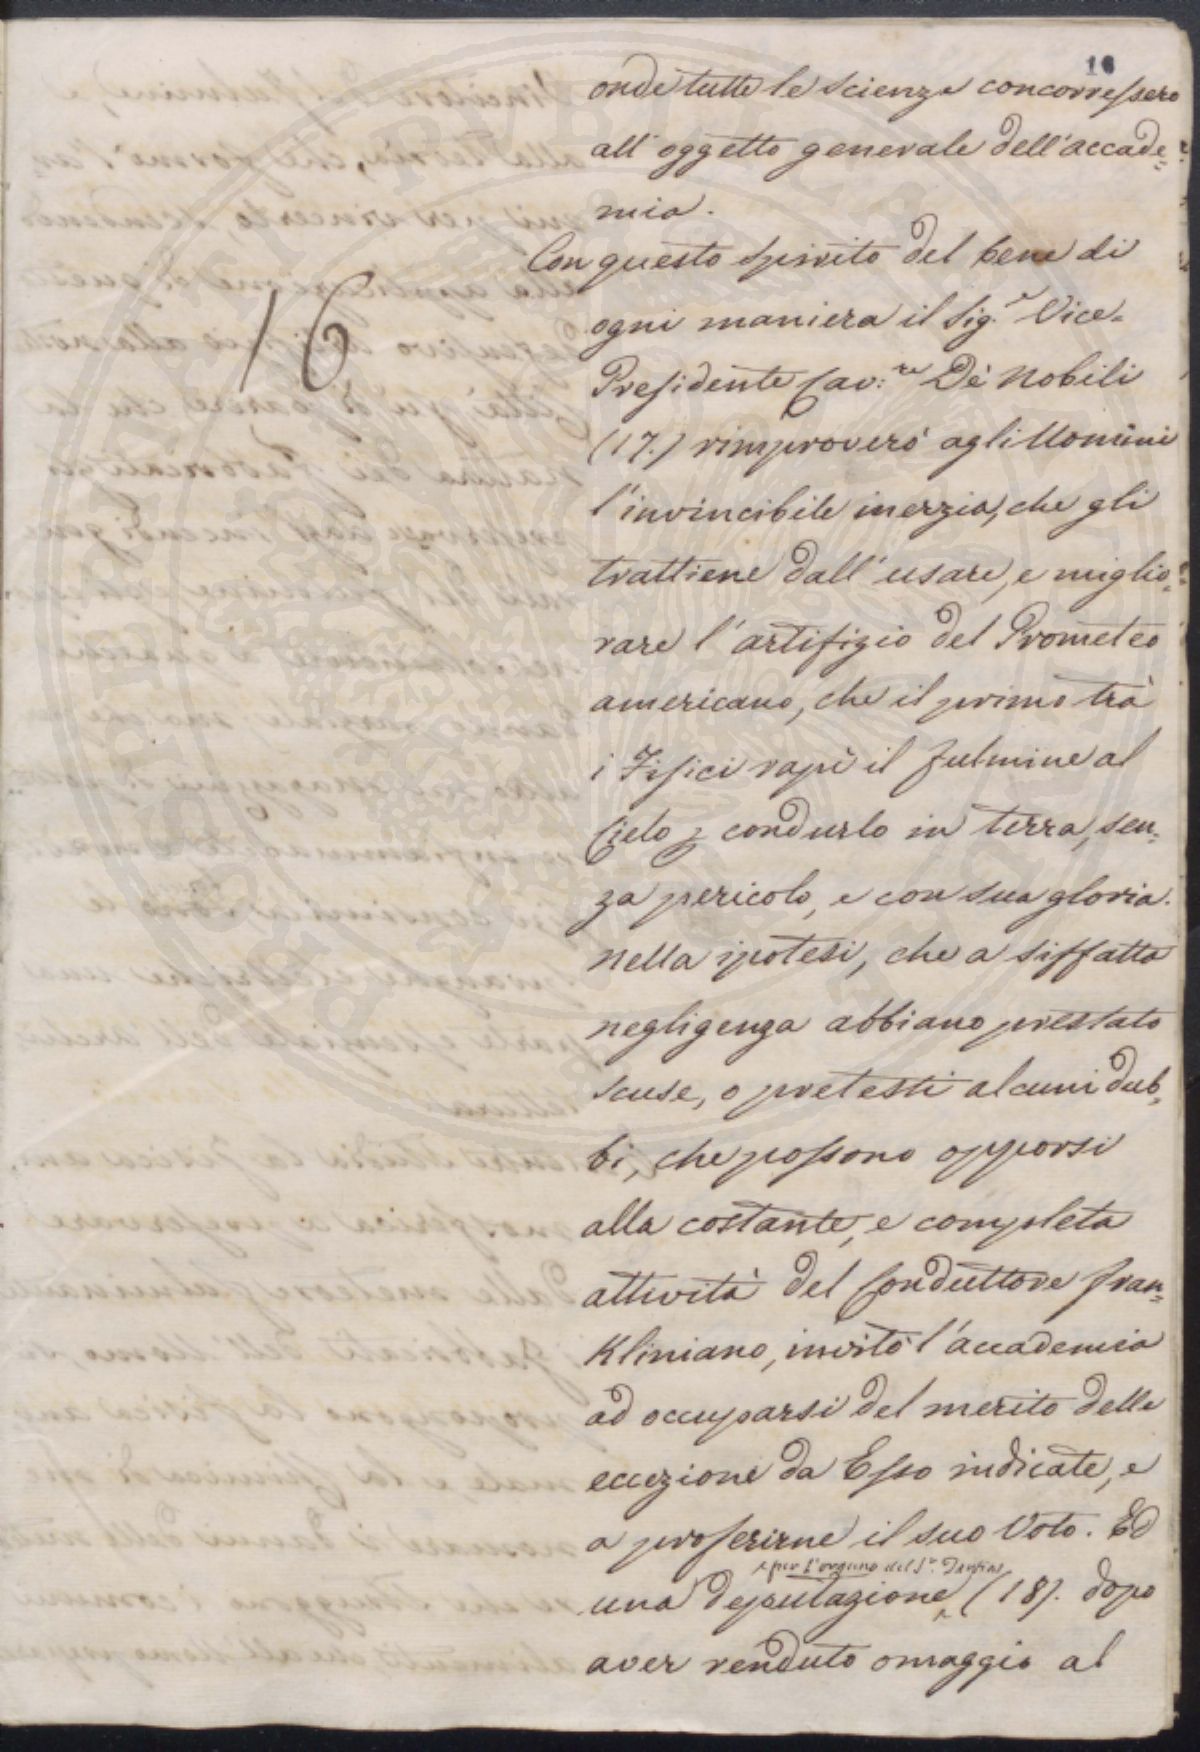 16
onde tutte le Scienze concorressero
all'oggetto generale dell'accade=
mia.
Con questo Spirito del bene di
16
ogni maniera il Sig.r Vice=
Presidente Cav:re De Nobili
(17.) rimproverò agli Uomini
l'invincibile inerzia, che gli
trattiene dall'usare, e miglio=
rare l'artifizio del Prometeo
americano, che il primo trà
i Fisici rapì il fulmine al
Cielo p condurlo in terra, sen=
za pericolo, e con sua gloria.
nella ipotesi, che a siffatta
negligenza abbiano prestato
scuse, o pretesti alcuni dub=
bi, che possono opporsi
alla costante, e completa
attività del Conduttore fran=
Kliniano, invitò l'accademia
ad occuparsi del merito delle
eccezione da Esso indicate, e
a proferirne il suo Voto. Ed
per l'organo del S.r
una deputazione (18). dopo
aver renduto omaggio al